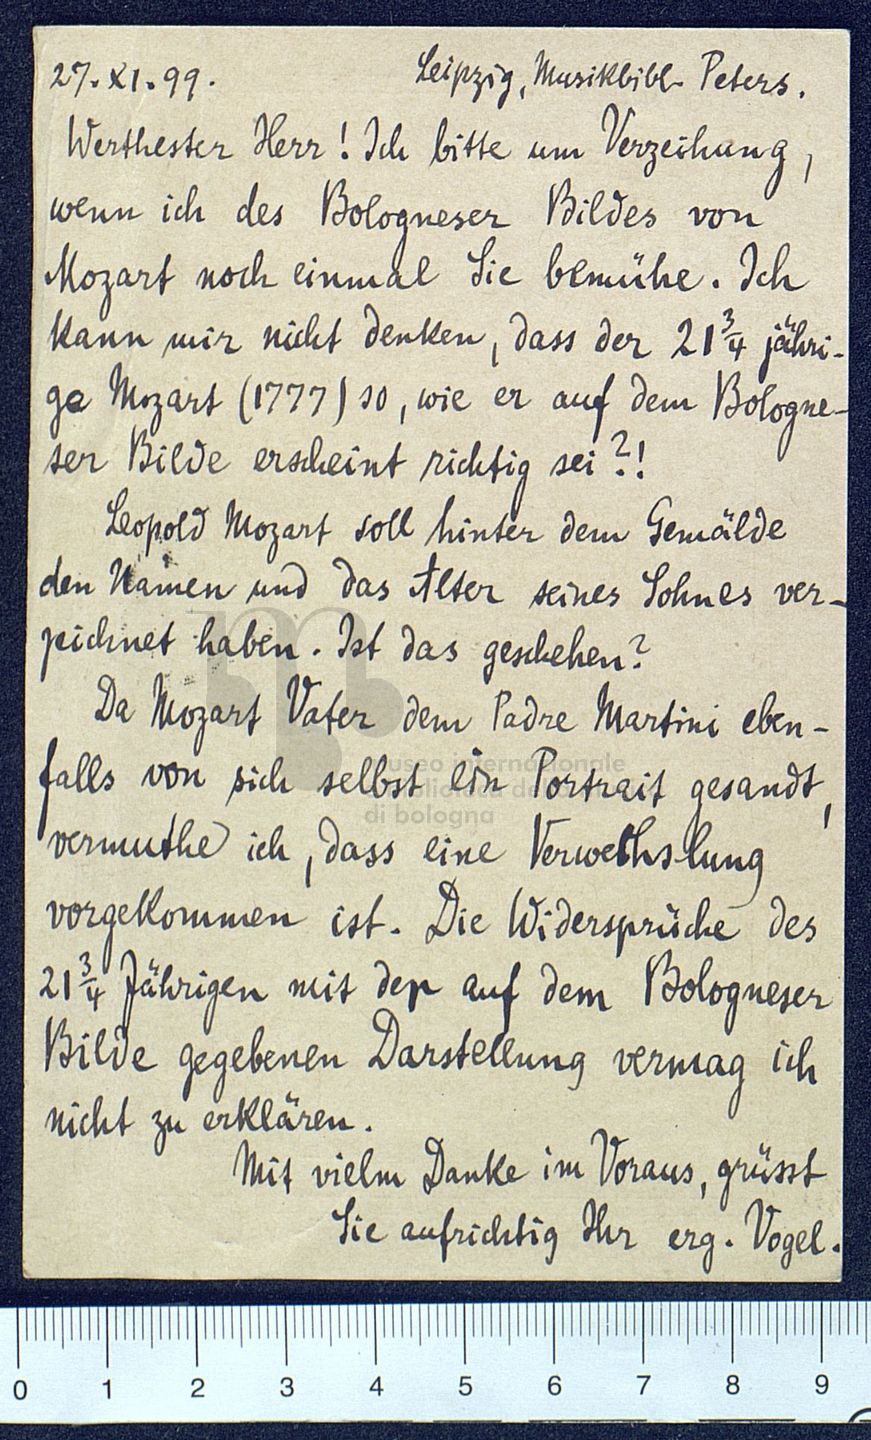 27. XI. 99.          Leipzig, Musikbibl. Peters.
Werthester Herr! Ich bitte um Verzeihung,
wenn ich des Bologneser Bildes von
Mozart noch einmal Sie bemühe. Ich
kann mir nicht denken, dass der 21 3/4 jähri-
ge Mozart (1777) so, wie er auf dem Bologne-
ser Bilde erscheint richtig sei?!
Leopold Mozart soll hinter dem Gemälde
den Namen und das Alter seines Sohnes ver-
zeichnet haben. Ist das geschehen?
Da Mozart Vater dem Padre Martini eben-
falls von sich selbst ein Portrait gesandt,
vermuthe ich, dass eine Verwechslung
vorgekommen ist. Die Widersprüche des
21 3/4 Jährigen mit der auf dem Bologneser
Bilde gegebenen Darstellung vermag ich
nicht zu erklären.
Mit vielm Danke im Voraus, grüsst
Sie aufrichtig Ihr erg. Vogel.
museo internazionale
biblioteca della
di bologna
0 1 2 3 4 5 6 7 8 9